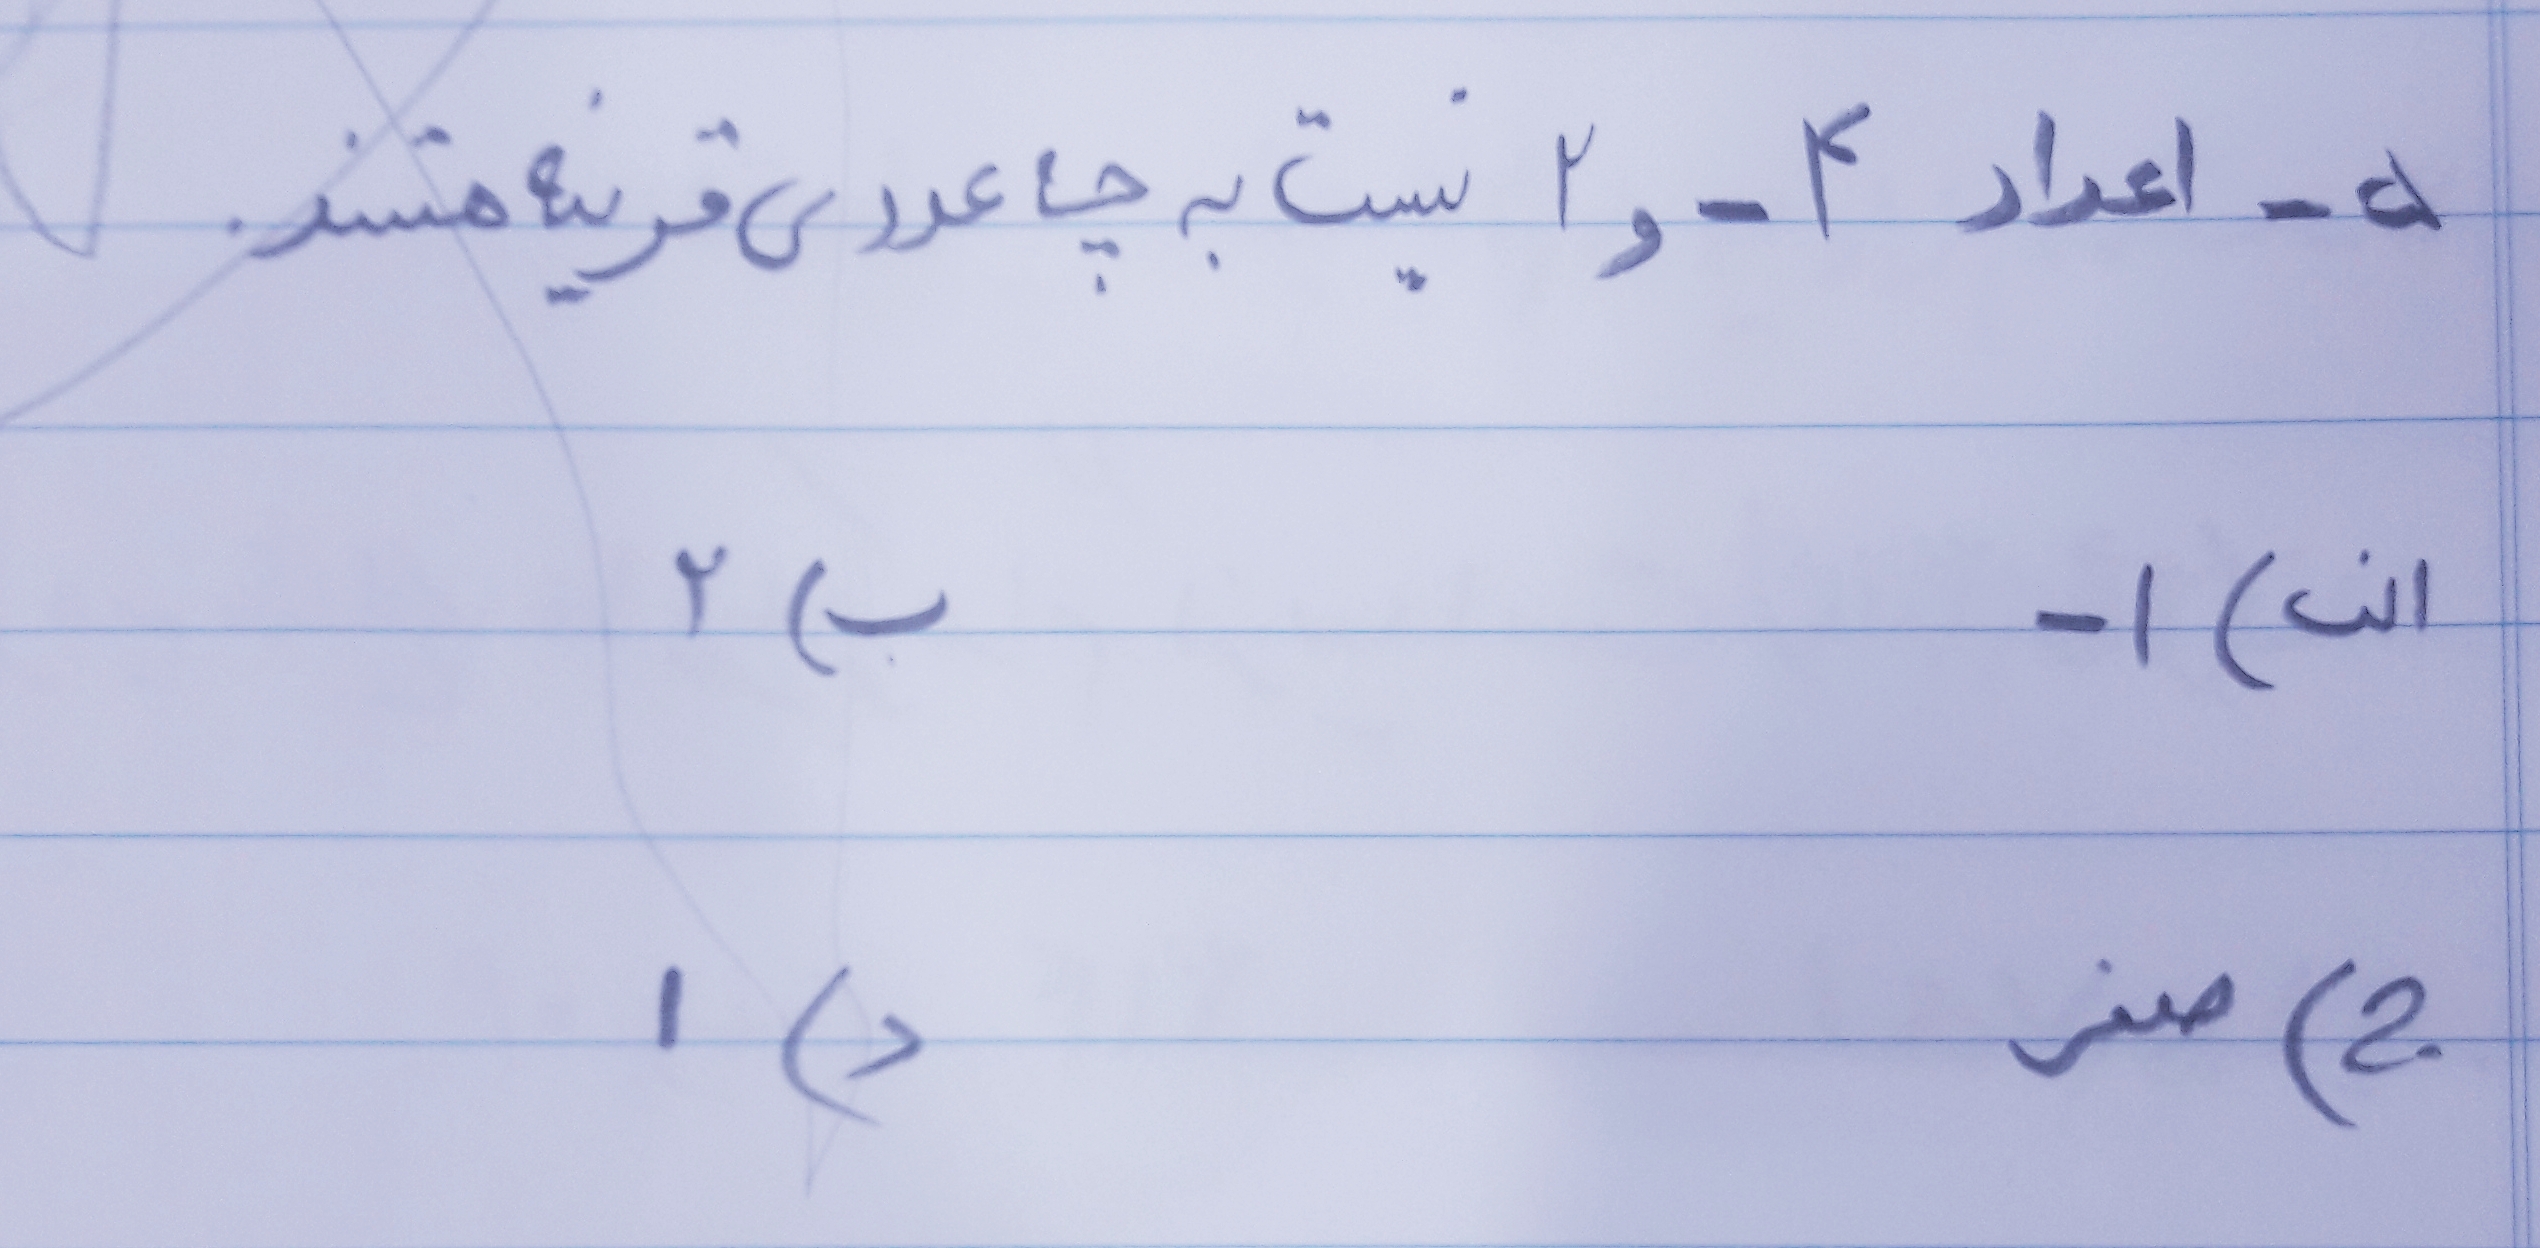 ۵- اعداد ۴- و ۲ نسبت به چه عددی قرینه هستند.
الف) ۱- ب) ۲
ج) صفر د) ۱